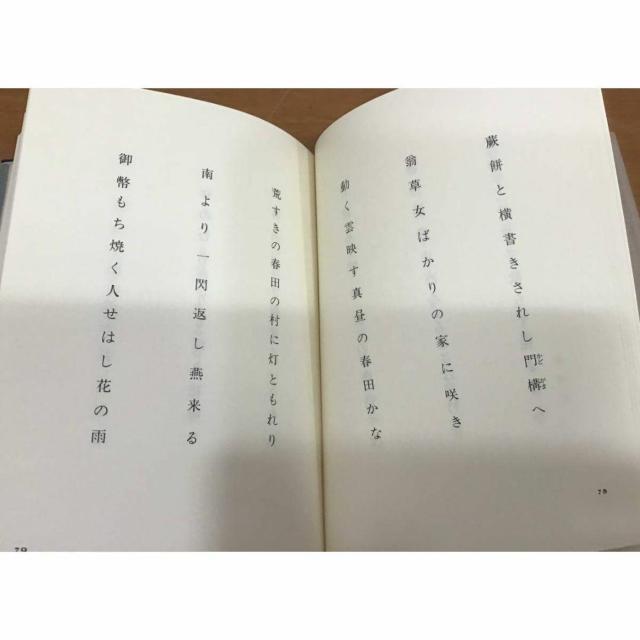 蕨餅と横書きされし門構へ
翁草女ばかりの家に咲き
動く雲映す真昼の春田かな
78
荒すきの春田の村に灯ともれり
南より一閃返し燕来る
御幣もち焼く人せはし花の雨